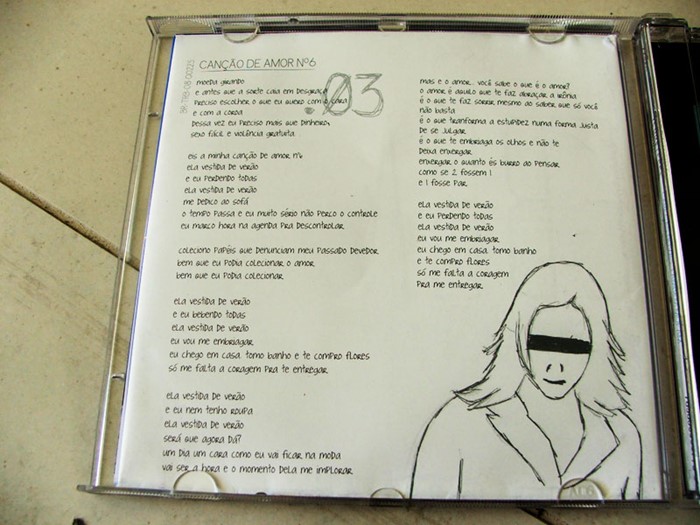 CANÇÃO DE AMOR Nº6
.03
moeda girando
e antes que a sorte caia em desgraça
preciso escolher o que eu quero com a cara
e com a coroa
dessa vez eu preciso mais que dinheiro,
sexo fácil e violência gratuita.
eis a minha canção de amor nº6
ela vestida de verão
e eu perdendo todas
ela vestida de verão
me dedico ao sofá
o tempo passa e eu muito sério não perco o controle
eu marco hora na agenda pra descontrolar
coleciono papéis que denunciam meu passado devedor
bem que eu podia colecionar o amor
bem que eu podia colecionar
ela vestida de verão
e eu bebendo todas
ela vestida de verão
eu vou me embriagar
eu chego em casa tomo banho e te compro flores
só me falta a coragem pra te entregar
ela vestida de verão
e eu nem tenho roupa
ela vestida de verão
será que agora dá?
um dia um cara como eu vai ficar na moda
vai ser a hora e o momento dela me implorar
mas e o amor... você sabe o que é o amor?
o amor é aquilo que te faz abraçar a irônia
é o que te faz sorrir mesmo ao saber que só você
não basta
é o que tranforma a estupidez numa forma justa
de se julgar
é o que te embriaga os olhos e não te
deixa enxergar
enxergar o quanto és burro ao pensar
como se 2 fossem 1
e 1 fosse par
ela vestida de verão
e eu perdendo todas
ela vestida de verão
eu vou me embriagar
eu chego em casa tomo banho
e te compro flores
só me falta a coragem
pra me entregar